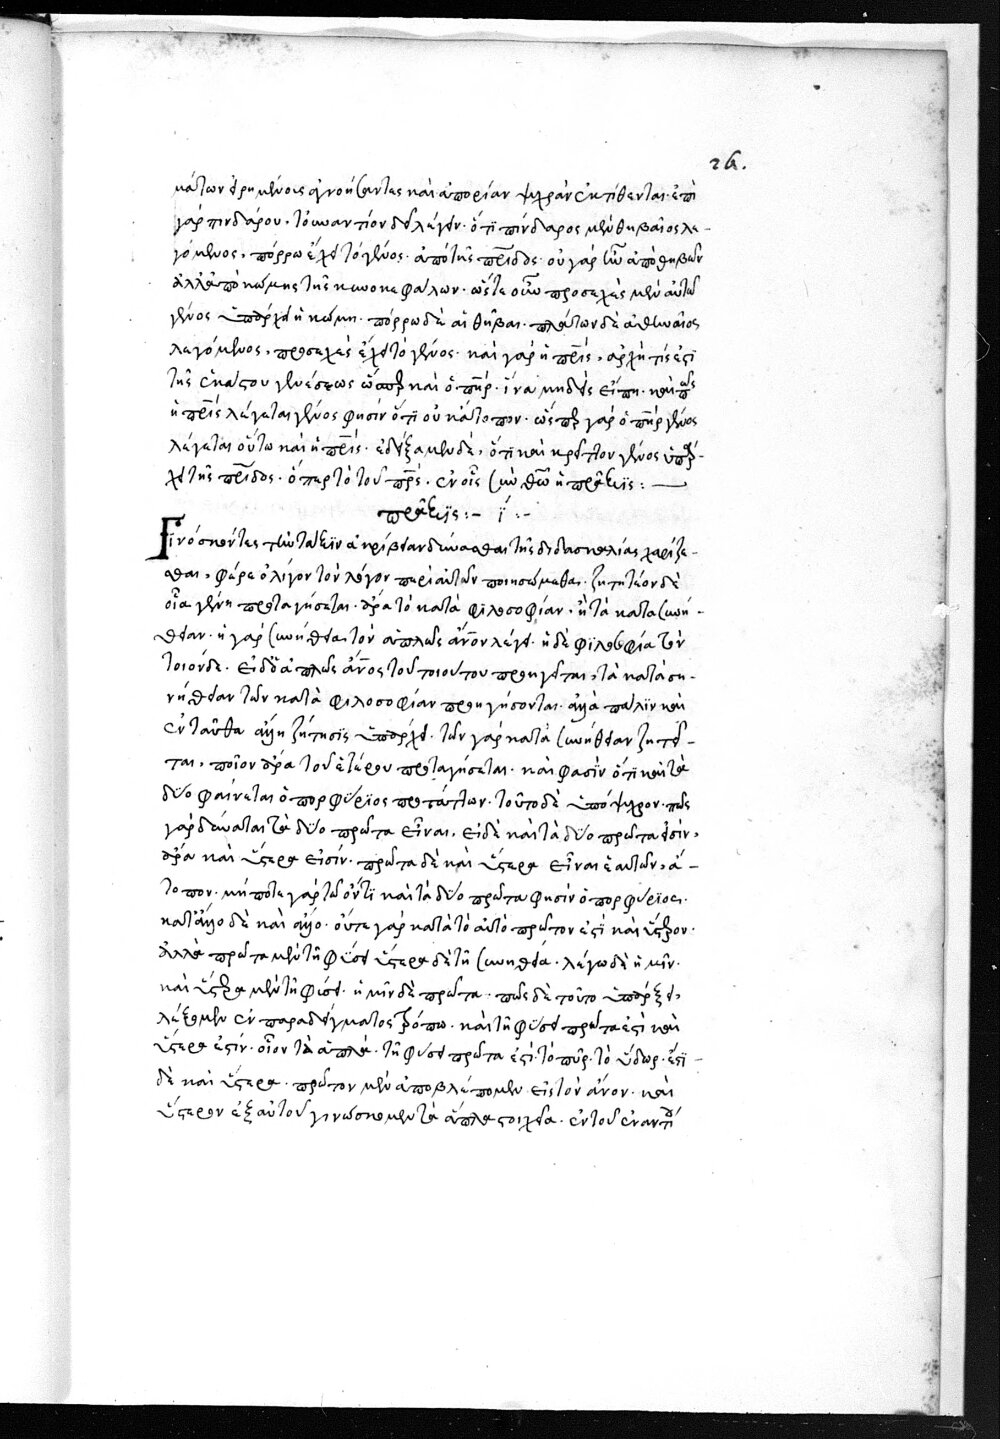 26.
μάτων εἰρημένοις ἀγνοήσαντες καὶ ἀπορίαν ψυχρὰν ἐκτίθενται. ἐπὶ
γὰρ πινδάρου, τὸ ἐναντίον δεῖ λέγειν. ὅτι πίνδαρος μὲν θηβαῖος λε-
γόμενος, πόρρω ἔχει τὸ γένος ἀπὸ τῆς πρίδος. οὐ γὰρ ἦν ἀπὸ θηβῶν
ἀλλ' ἀπὸ κώμης τῆς κυνοκεφάλων. ὥστε οὖν προσεχὲς μὲν αὐτῶ
γένος ὑπάρχει ἡ κώμη. πόρρω δὲ αἱ θῆβαι. πλάτων δὲ ἀθηναῖος
λεγόμενος, προσεχὲς ἔχει τὸ γένος. καὶ γὰρ ἡ πρίς, ἀρχή τίς ἐστι
τῆς ἑκάστου γενέσεως ὥσπερ καὶ ὁ πήρ. ἵνα μηδεὶς εἴπη. καὶ πῶς
ἡ πρίς λέγεται γένος φησὶν ὅτι οὐκ ἄτοπον. ὥσπερ γὰρ ὁ πήρ γένος
λέγεται οὕτω καὶ ἡ πρίς. ἐδείξαμεν δὲ, ὅτι καὶ κρεῖττον γένος ὑπάρ-
χει τῆς πρίδος. ὅπερ τὸ τοῦ πρς. ἐν οἷς σὺν θεῶ ἡ πρᾶξις: —
πρᾶξις:- ί:-
Γινόσκοντες τὴν τάξιν ἀκρίβειαν δύνασθαι τῆς διδασκαλίας χαρίζε-
σθαι, φέρε ὀλίγον τὸν λόγον περὶ αὐτῶν ποιησώμεθα. ζητητέον δὲ
οἷα γένη προταγήσεται. ἆρα τὸ κατὰ φιλοσοφίαν, ἢ τὰ κατὰ συνή-
θειαν. ἡ γὰρ συνήθεια τὸν ἁπλῶς ἄνον λέγει. ἡ δὲ φιλοσοφία τὸν
τοιόνδε. εἰ δὲ ὁ ἁπλῶς ἄνος τοῦ τοιούτου προηγεῖται, τὰ κατὰ συ-
νήθειαν τῶν κατὰ φιλοσοφίαν προηγήσονται. ἀλλὰ πάλιν καὶ
ἐνταῦθα ἄλλη ζήτησις ὑπάρχει. τῶν γὰρ κατὰ συνήθειαν ζητεῖ-
ται, ποῖον ἆρα τοῦ ἑτέρου προταγήσεται. καὶ φασὶν ὅτι καὶ τὰ
δύο φαίνεται ὁ πορφύριος προτάττων. τοῦτο δὲ ὑπόψυχρον. πῶς
γὰρ δύναται τὰ δύο πρῶτα εἶναι. εἰ δὲ καὶ τὰ δύο πρῶτα εἰσὶν,
ἆρα καὶ ὕστερα εἰσίν. πρῶτα δὲ καὶ ὕστερα εἶναι ἑαυτῶν, ἄ-
τοπον. μήποτε γὰρ τῶ ὄντι καὶ τὰ δύο πρῶτα φησὶν ὁ πορφύριος.
κατ' ἄλλο δὲ καὶ ἄλλο. οὔτε γὰρ κατὰ τὸ αὐτὸ πρῶτον ἐστὶ καὶ ὕστερον.
ἀλλὰ πρῶτα μὲν τῆ φύσει ὕστερα δὲ τῆ συνηθεία. λέγω δὲ ἡμῖν.
καὶ ὕστερα μὲν τῆ φύσει. ἡμῖν δὲ πρῶτα. πῶς δὲ τοῦτο ὑπάρξει,
λέξομεν ἐν παραδείγματος τρόπω. καὶ τῆ φύσει πρῶτα ἐστὶ καὶ
ὕστερα ἐστίν. οἷον τὰ ἁπλᾶ. τῆ φύσει πρῶτα ἐστί. τὸ πῦρ. τὸ ὕδωρ. ἔστι
δὲ καὶ ὕστερα. πρῶτον μὲν ἀποβλέπομεν εἰς τὸν ἄνον. καὶ
ὕστερον ἐξ αὐτοῦ γινώσκομεν τὰ ἁπλᾶ στοιχεῖα. ἐν τοῦ ἐναντί